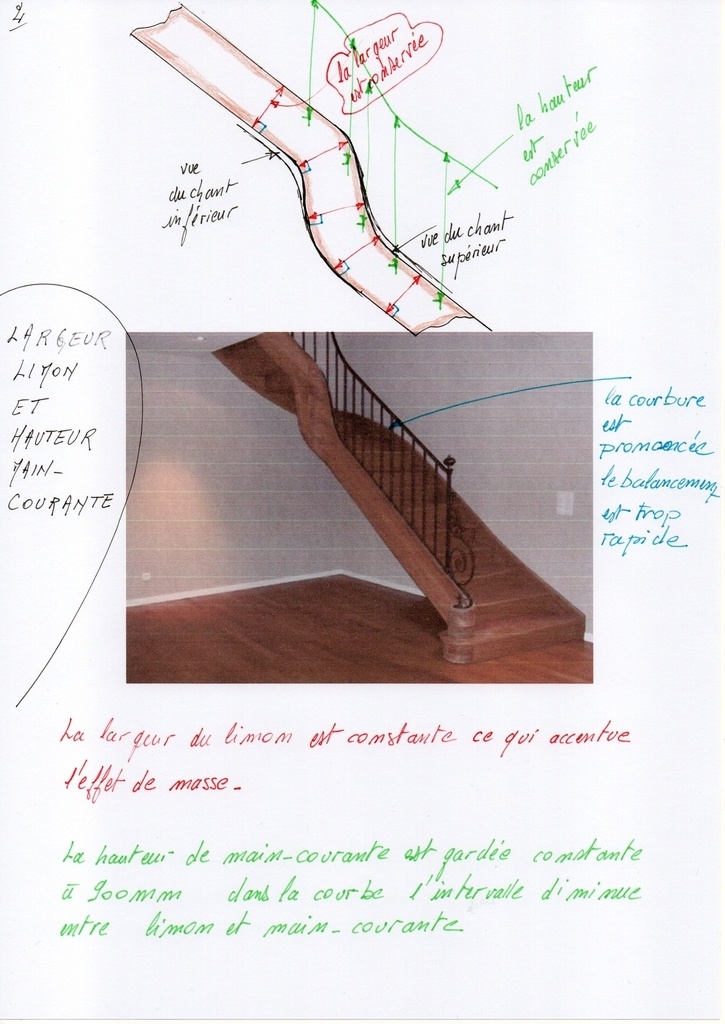 4
la largeur
est conservée
la hauteur
est
conservée
vue
du chant
inférieur
vue du chant
supérieur
LARGEUR
LIMON
ET
HAUTEUR
MAIN-
COURANTE
la courbure
est
prononcée
le balancement
est trop
rapide
La largeur du limon est constante ce qui accentue
l'effet de masse.
La hauteur de main-courante est gardée constante
à 900mm dans la courbe l'intervalle diminue
entre limon et main-courante